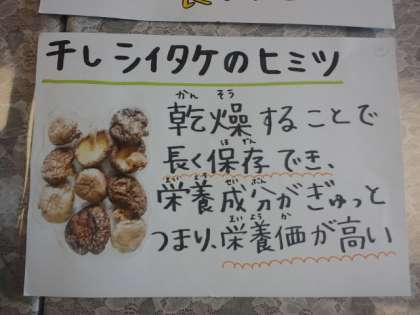 干しシイタケのヒミツ
かんそう
乾燥することで
ほぞん
長く保存でき、
えいようせいぶん
栄養成分がぎゅっと
えいようか
つまり、栄養価が高い